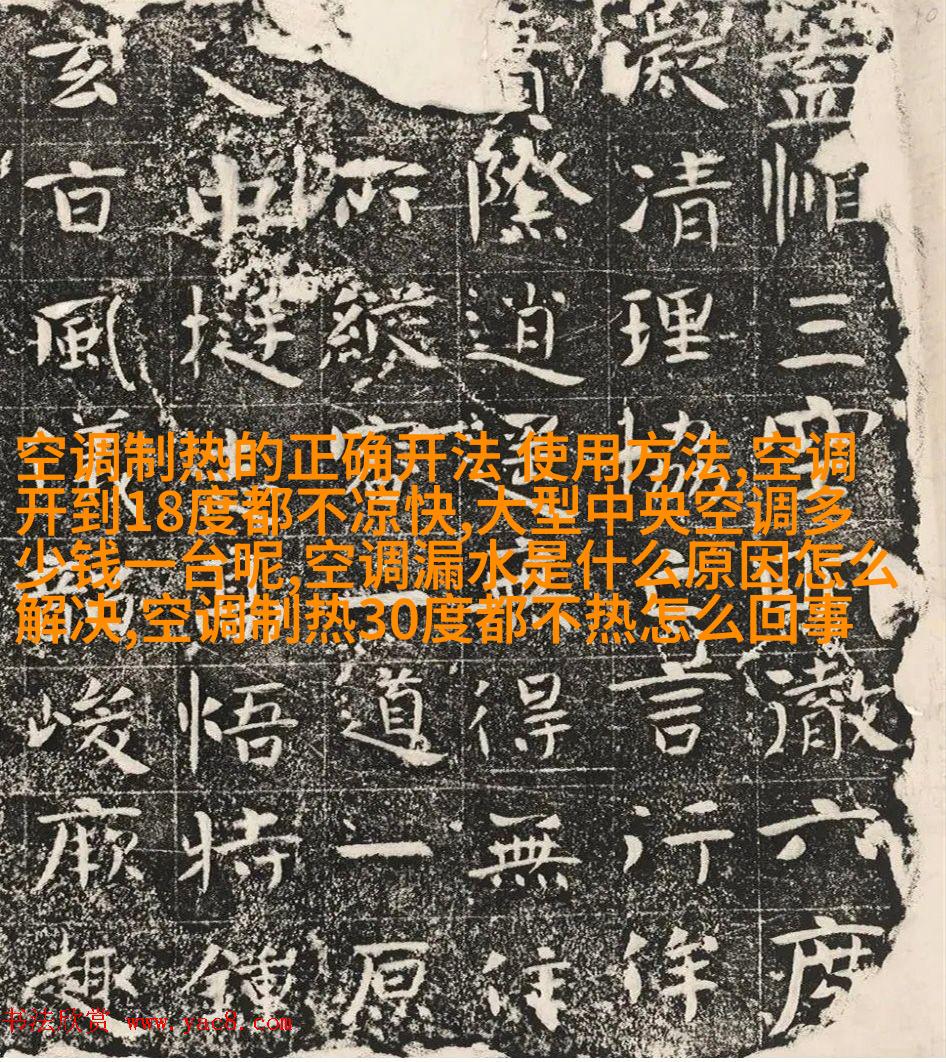 三空澈六度
凝清理協言行
際道得無住
所縱道一原
入中挺悟特鍾
玄風峻厥趣
空调制热的正确开法 使用方法,空调
开到18度都不凉快,大型中央空调多
少钱一台呢,空调漏水是什么原因怎么
解决,空调制热30度都不热怎么回事
书法欣赏 www.yac8.com